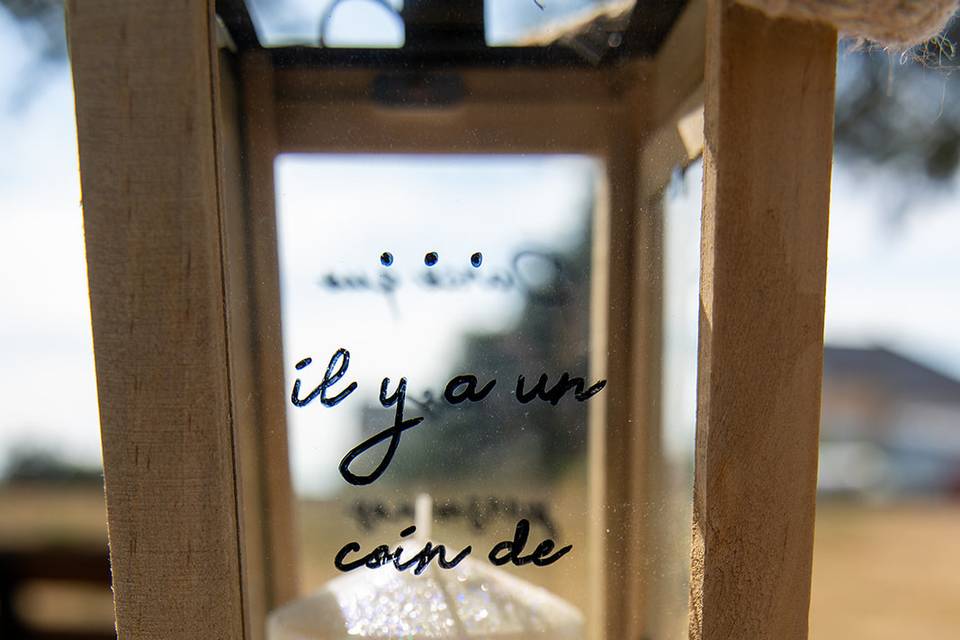 ...
il y a un
coin de